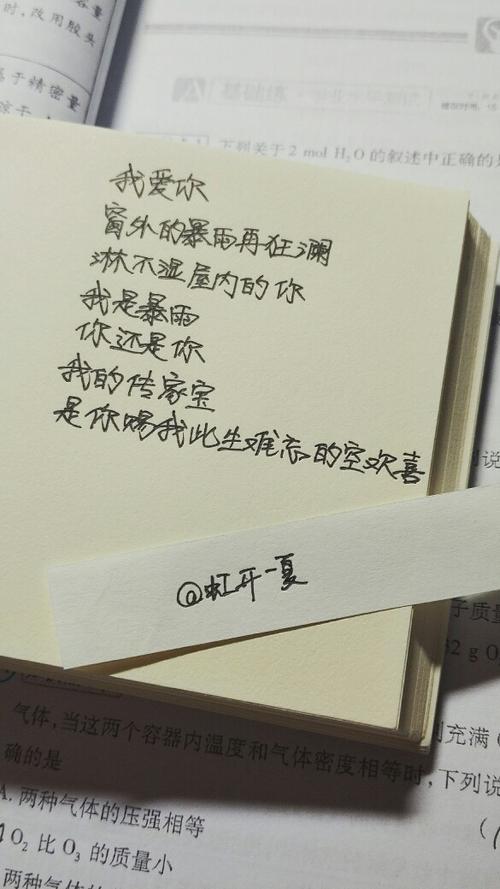 时,改用胶头
属于精密量
下列关于2 mol H₂O的叙述中正确的是
我爱你
窗外的暴雨再狂澜
淋不湿屋内的你
我是暴雨
你还是你
我的传家宝
是你赐我此生难忘的空欢喜
@虹开一夏
子质量
32 g O
气体,当这两个容器内温度和气体密度相等时,下列说
确的是
A.两种气体的压强相等
O₂比O₃的质量小
两种气体的